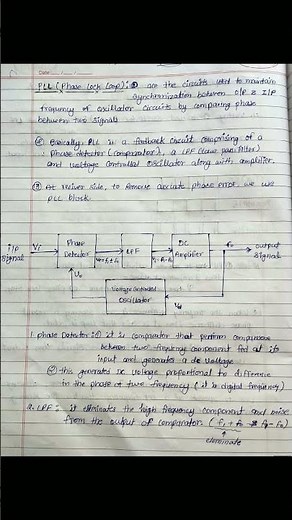 Date
PLL (Phase Lock Loop):- ① are the circuits used to maintain
synchronization between O/P & I/P
frequency of oscillator circuits by comparing phase
between two signals
② Basically PLL is a feedback circuit comprising of a
Phase detector (comparator), a LPF (Low pass filter)
and voltage controlled oscillator along with amplifier.
③ At reciver side, to remove phase error, we use
PLL block
I/P
signal
Vs
Phase
Detector
LPF
DC
Amplifier
fo
output
signal
Vo
Voltage controlled
Oscillator
1. Phase Detector:- ① it is comparator that perform comparison
between two frequency component fed at its
input and generates a dc voltage
② this generated DC voltage proportional to difference
in the phase of two frequency (it is digital frequency)
2. LPF:- it eliminates the high frequency component and noise
from the output of comparator (fs + fo & fs - fo)
eliminate